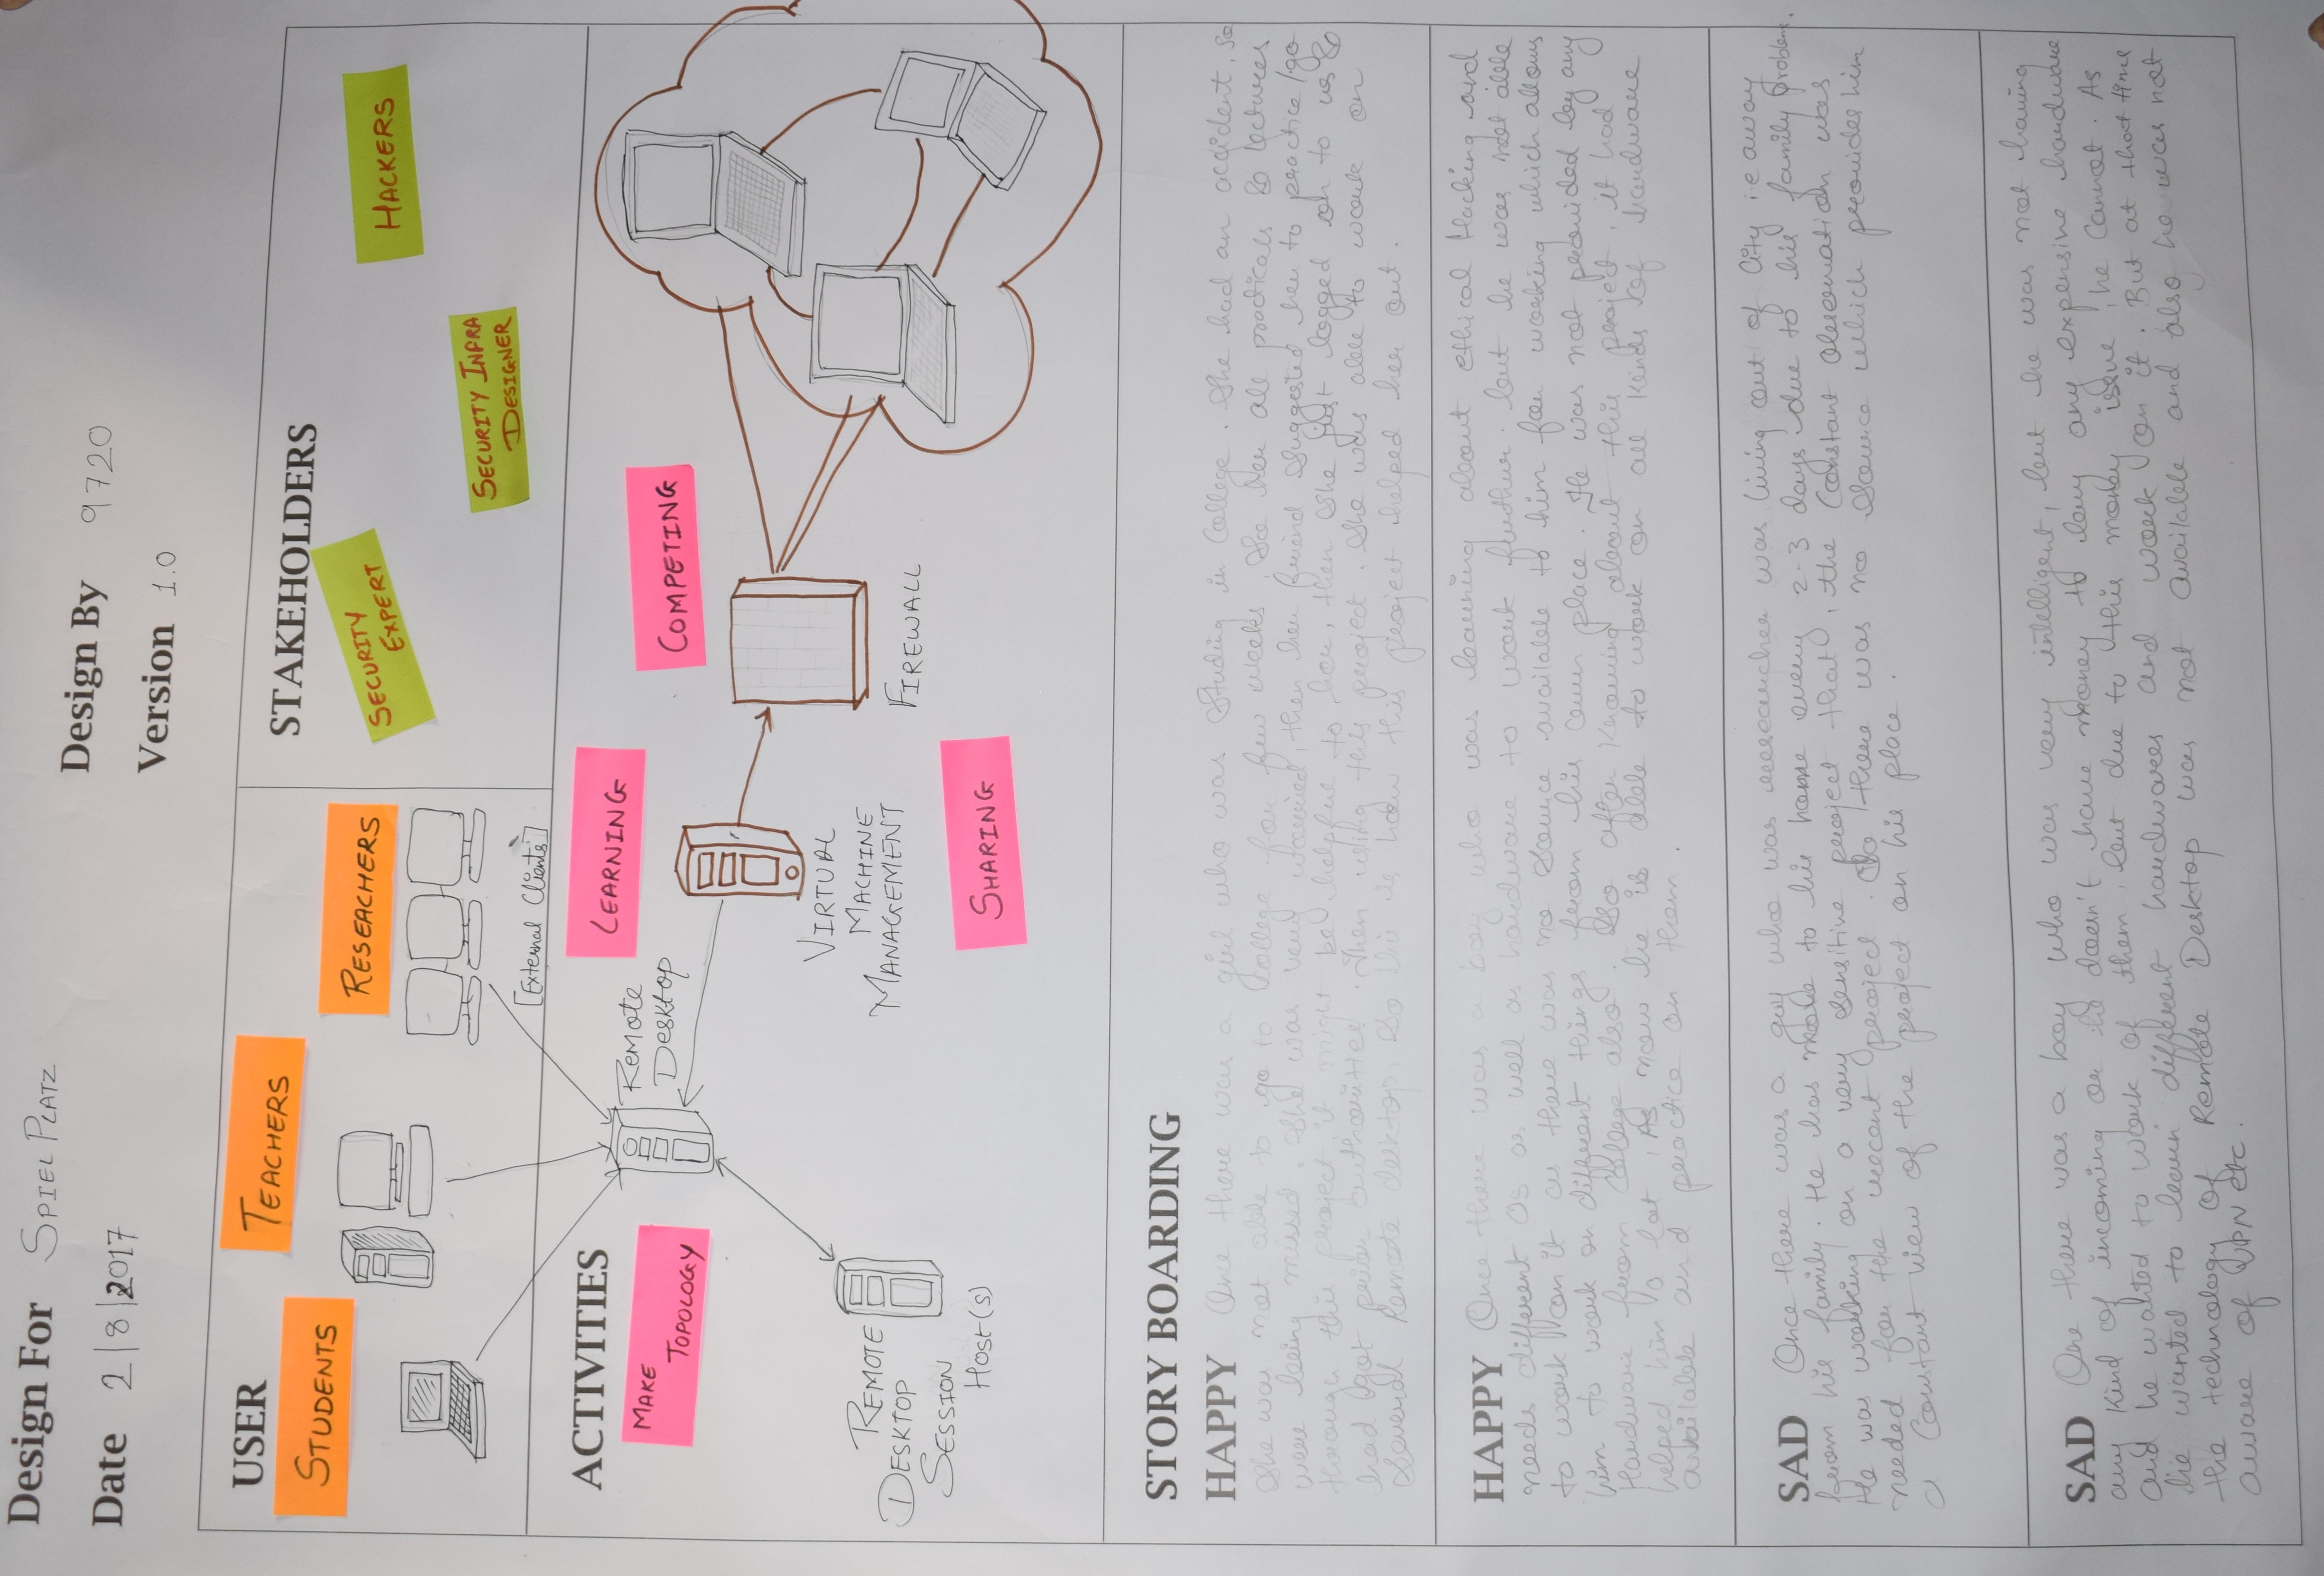 Design For SPIEL PLATZ
Design By 9720
Date 2/8/2017
Version 1.0
USER
STUDENTS
TEACHERS
RESEACHERS
[External Clients]
STAKEHOLDERS
SECURITY
EXPERT
SECURITY INFRA
DESIGNER
HACKERS
ACTIVITIES
MAKE
TOPOLOGY
LEARNING
COMPETING
SHARING
REMOTE
DESKTOP
REMOTE
DESKTOP
SESSION
HOST(S)
VIRTUAL
MACHINE
MANAGEMENT
FIREWALL
STORY BOARDING
HAPPY Once there was a girl who was Studing in College. She had an accident, so
she was not able to go to College for few weeks. So her all practicals & lectures
were being missed. She was very worried, then her friend Suggested her to practice/go
through this project it might be helpful to her, then she just logged on to us &
had got authorities. Then using this project she was able to work on
Several Remote desktop. So this is how this project helped her out.
HAPPY Once there was a boy who was learning about ethical Hacking and
needs different OS as well as hardware to work further. but he was not able
to work on it as there was no Source available to him for working which allows
him to work on different things from his own place. He was not provided by any
Hardware from College also. So after Knowing about this project, it had
helped him a lot, As now he is able to work on all Kinds of hardware
available and practice on them.
SAD Once there was a guy who was researcher was living out of City i.e away
from his family. He has to his home every 2-3 days due to his family problems.
He was working on a very Sensitive project that, the Constant observation was
needed for the recent project. So there was no Source which provides him
a Constant view of the project on his place.
SAD One there was a boy who was very intelligent, but he was not having
any Kind of incoming or he doesn't have money to buy any expensive hardware
and he wanted to work of them, but due to this money issue, he cannot. As
he wanted to learn different hardwares and work on it. But at that time
the technology of Remote Desktop was not available and also he was not
aware of VPN etc.